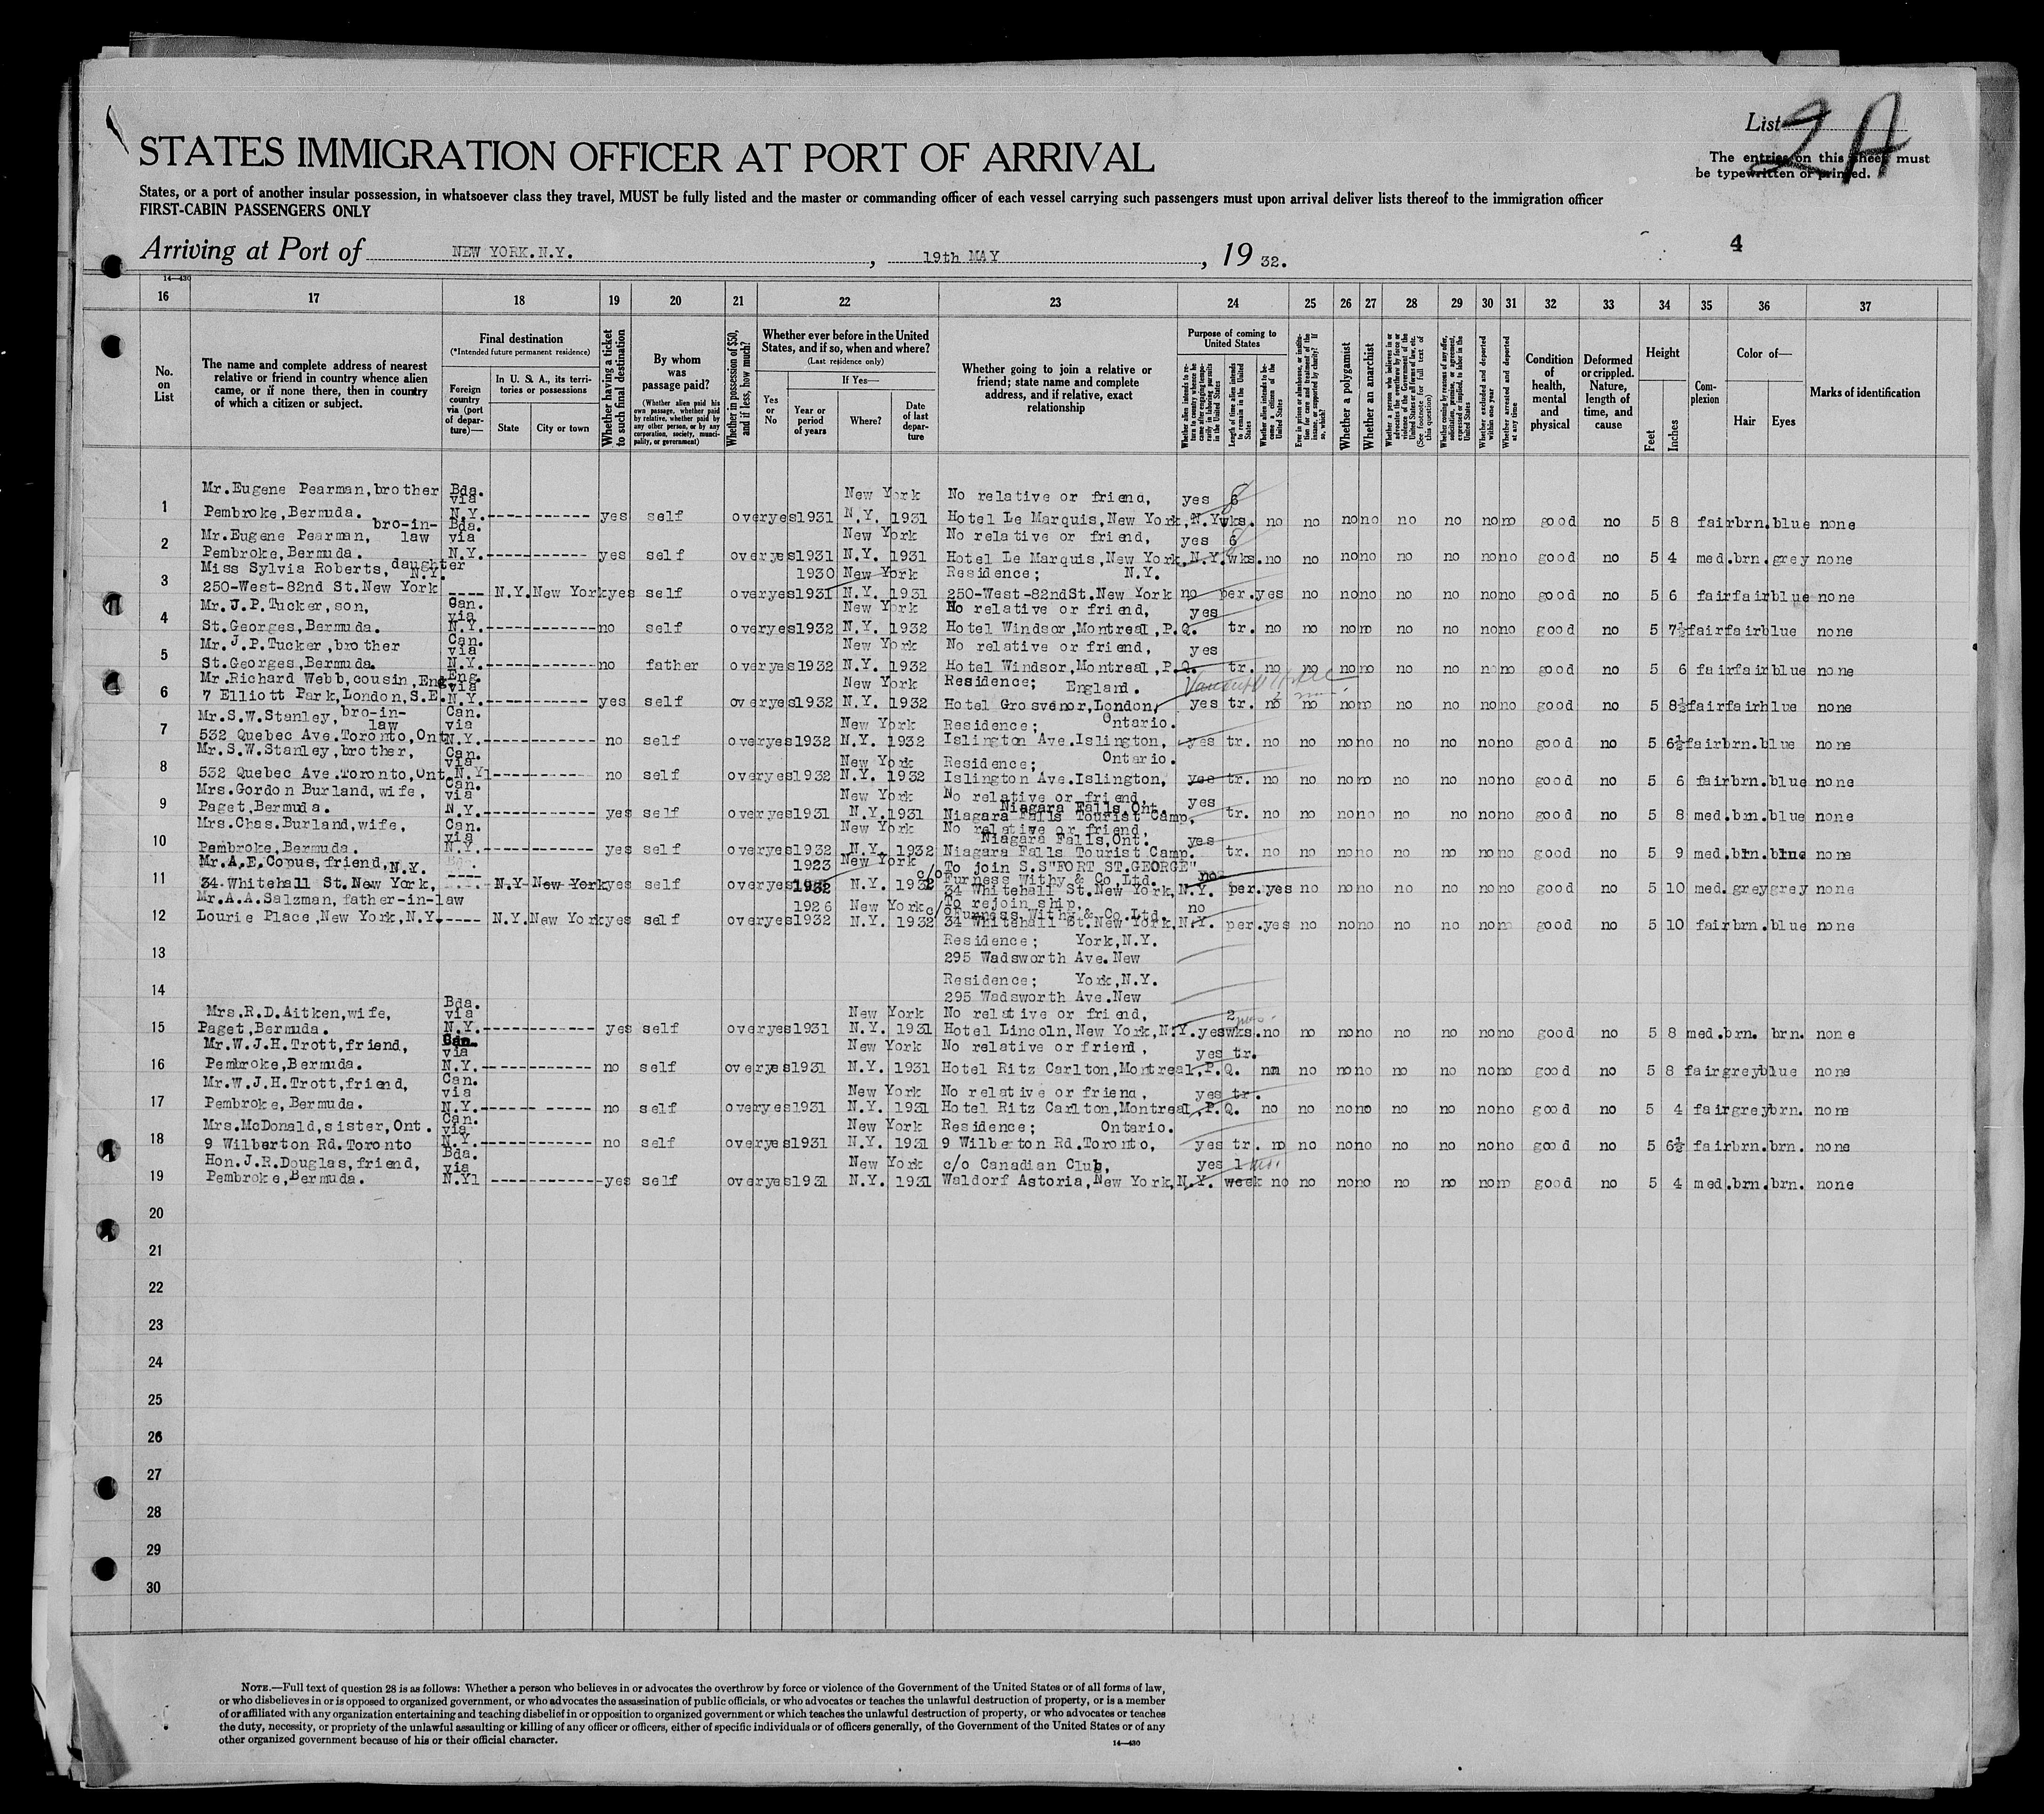 List 2 A
STATES IMMIGRATION OFFICER AT PORT OF ARRIVAL
The entries on this sheet must
be typewritten or printed.
States, or a port of another insular possession, in whatsoever class they travel, MUST be fully listed and the master or commanding officer of each vessel carrying such passengers must upon arrival deliver lists thereof to the immigration officer
FIRST-CABIN PASSENGERS ONLY
Arriving at Port of NEW YORK.N.Y. , 19th MAY , 19 32.
4
14—430
16 17 18 19 20 21 22 23 24 25 26 27 28 29 30 31 32 33 34 35 36 37
No. on List
The name and complete address of nearest relative or friend in country whence alien came, or if none there, then in country of which a citizen or subject.
Final destination
(*Intended future permanent residence)
Foreign country via (port of departure)—
In U. S. A., its territories or possessions
State
City or town
Whether having a ticket to such final destination
By whom was passage paid?
(Whether alien paid his own passage, whether paid by relative, whether paid by any other person, or by any corporation, society, municipality, or government)
Whether in possession of $50, and if less, how much?
Whether ever before in the United States, and if so, when and where?
(Last residence only)
If Yes—
Yes or No
Year or period of years
Where?
Date of last departure
Whether going to join a relative or friend; state name and complete address, and if relative, exact relationship
Purpose of coming to United States
Length of time alien intends to remain in the United States
Whether alien intends to become a citizen of the United States
Whether a polygamist
Whether an anarchist
(See footnote for full text of this question)
Whether excluded and deported within one year
Whether arrested and deported at any time
Condition of health, mental and physical
Deformed or crippled. Nature, length of time, and cause
Height
Feet
Inches
Complexion
Color of—
Hair
Eyes
Marks of identification
1 Mr.Eugene Pearman,brother Bda. via New York No relative or friend, yes 6
Pembroke,Bermuda. N.Y.------------ yes self over yes 1931 N.Y. 1931 Hotel Le Marquis,New York,N.Y. wks. no no no no no no no no good no 5 8 fair brn. blue none
2 Mr.Eugene Pearman, bro-in-law Bda. via New York No relative or friend, yes 6
Pembroke,Bermuda. N.Y.------------ yes self over yes 1931 N.Y. 1931 Hotel Le Marquis,New York,N.Y. wks. no no no no no no no no good no 5 4 med. brn. grey none
3 Miss Sylvia Roberts,daughter N.Y. 1930 New York Residence; N.Y.
250-West-82nd St.New York ---- N.Y. New York yes self over yes 1931 N.Y. 1931 250-West-82ndSt.New York no per. yes no no no no no no no good no 5 6 fair fair blue none
4 Mr.J.P.Tucker,son, Can. via New York No relative or friend, yes
St.Georges,Bermuda. N.Y.------------ no self over yes 1932 N.Y. 1932 Hotel Windsor,Montreal,P.Q. tr. no no no no no no no no good no 5 7½ fair fair blue none
5 Mr.J.P.Tucker,brother Can. via New York No relative or friend, yes
St.Georges,Bermuda. N.Y.------------ no father over yes 1932 N.Y. 1932 Hotel Windsor,Montreal,P.Q. tr. no no no no no no no no good no 5 6 fair fair blue none
6 Mr.Richard Webb,cousin,Eng. Eng. via New York Residence; England.
7 Elliott Park,London,S.E. N.Y.------------ yes self over yes 1932 N.Y. 1932 Hotel Grosvenor,London, yes tr. no no no no no no no no good no 5 8½ fair fair blue none
7 Mr.S.W.Stanley,bro-in-law Can. via New York Residence; Ontario.
532 Quebec Ave.Toronto,Ont N.Y.------------ no self over yes 1932 N.Y. 1932 Islington Ave.Islington, yes tr. no no no no no no no no good no 5 6½ fair brn. blue none
8 Mr.S.W.Stanley,brother, Can. via New York Residence; Ontario.
532 Quebec Ave.Toronto,Ont. N.Y ------------ no self over yes 1932 N.Y. 1932 Islington Ave.Islington, yes tr. no no no no no no no no good no 5 6 fair brn. blue none
9 Mrs.Gordon Burland,wife, Can. via New York No relative or friend, yes
Niagara Falls,Ont.
Paget,Bermuda. N.Y.------------ yes self over yes 1931 N.Y. 1931 Niagara Falls Tourist Camp, tr. no no no no no no no no good no 5 8 med. brn. blue none
10 Mrs.Chas.Burland,wife, Can. via New York No relative or friend,
Niagara Falls,Ont. yes
Pembroke,Bermuda. N.Y.------------ yes self over yes 1932 N.Y. 1932 Niagara Falls Tourist Camp. tr. no no no no no no no no good no 5 9 med. brn. blue none
11 Mr.A.E.Copus,friend,N.Y. ---- 1923 New York To join S.S"FORT ST.GEORGE"
c/o Furness Withy & Co.Ltd. no
34 Whitehall St.New York, N.Y New York yes self over yes 1932 N.Y. 1932 34 Whitehall St.New York,N.Y. per. yes no no no no no no no good no 5 10 med. grey grey none
12 Mr.A.A.Salzman,father-in-law 1926 New York To rejoin ship,
c/o Furness Withy & Co.Ltd. no
Lourie Place,New York,N.Y. ---- N.Y. New York yes self over yes 1932 N.Y. 1932 34 Whitehall St.New York,N.Y. per. yes no no no no no no no good no 5 10 fair brn. blue none
13 Residence; York,N.Y.
295 Wadsworth Ave.New
14 Residence; York,N.Y.
295 Wadsworth Ave.New
15 Mrs.R.D.Aitken,wife, Bda. via New York No relative or friend, 2
Paget,Bermuda. N.Y.------------ yes self over yes 1931 N.Y. 1931 Hotel Lincoln,New York,N.Y. yes wks. no no no no no no no no good no 5 8 med. brn. brn. none
16 Mr.W.J.H.Trott,friend, Can. via New York No relative or friend, yes tr.
Pembroke,Bermuda. N.Y.------------ no self over yes 1931 N.Y. 1931 Hotel Ritz Carlton,Montreal,P.Q. no no no no no no no no good no 5 8 fair grey blue none
17 Mr.W.J.H.Trott,friend, Can. via New York No relative or friend, yes tr.
Pembroke,Bermuda. N.Y.------------ no self over yes 1931 N.Y. 1931 Hotel Ritz Carlton,Montreal,P.Q. no no no no no no no no good no 5 4 fair grey brn. none
18 Mrs.McDonald,sister,Ont. Can. via New York Residence; Ontario.
9 Wilberton Rd.Toronto N.Y.------------ no self over yes 1931 N.Y. 1931 9 Wilberton Rd.Toronto, yes tr. no no no no no no no no good no 5 6½ fair brn. brn. none
19 Hon.J.R.Douglas,friend, Bda. via New York c/o Canadian Club, yes 1
Pembroke,Bermuda. N.Yl ------------ yes self over yes 1931 N.Y. 1931 Waldorf Astoria,New York,N.Y. week no no no no no no no no good no 5 4 med. brn. brn. none
20
21
22
23
24
25
26
27
28
29
30
NOTE.—Full text of question 28 is as follows: Whether a person who believes in or advocates the overthrow by force or violence of the Government of the United States or of all forms of law,
or who disbelieves in or is opposed to organized government, or who advocates the assassination of public officials, or who advocates or teaches the unlawful destruction of property, or is a member
of or affiliated with any organization entertaining and teaching disbelief in or opposition to organized government or which teaches the unlawful destruction of property, or who advocates or teaches
the duty, necessity, or propriety of the unlawful assaulting or killing of any officer or officers, either of specific individuals or of officers generally, of the Government of the United States or of any
other organized government because of his or their official character.
14—430